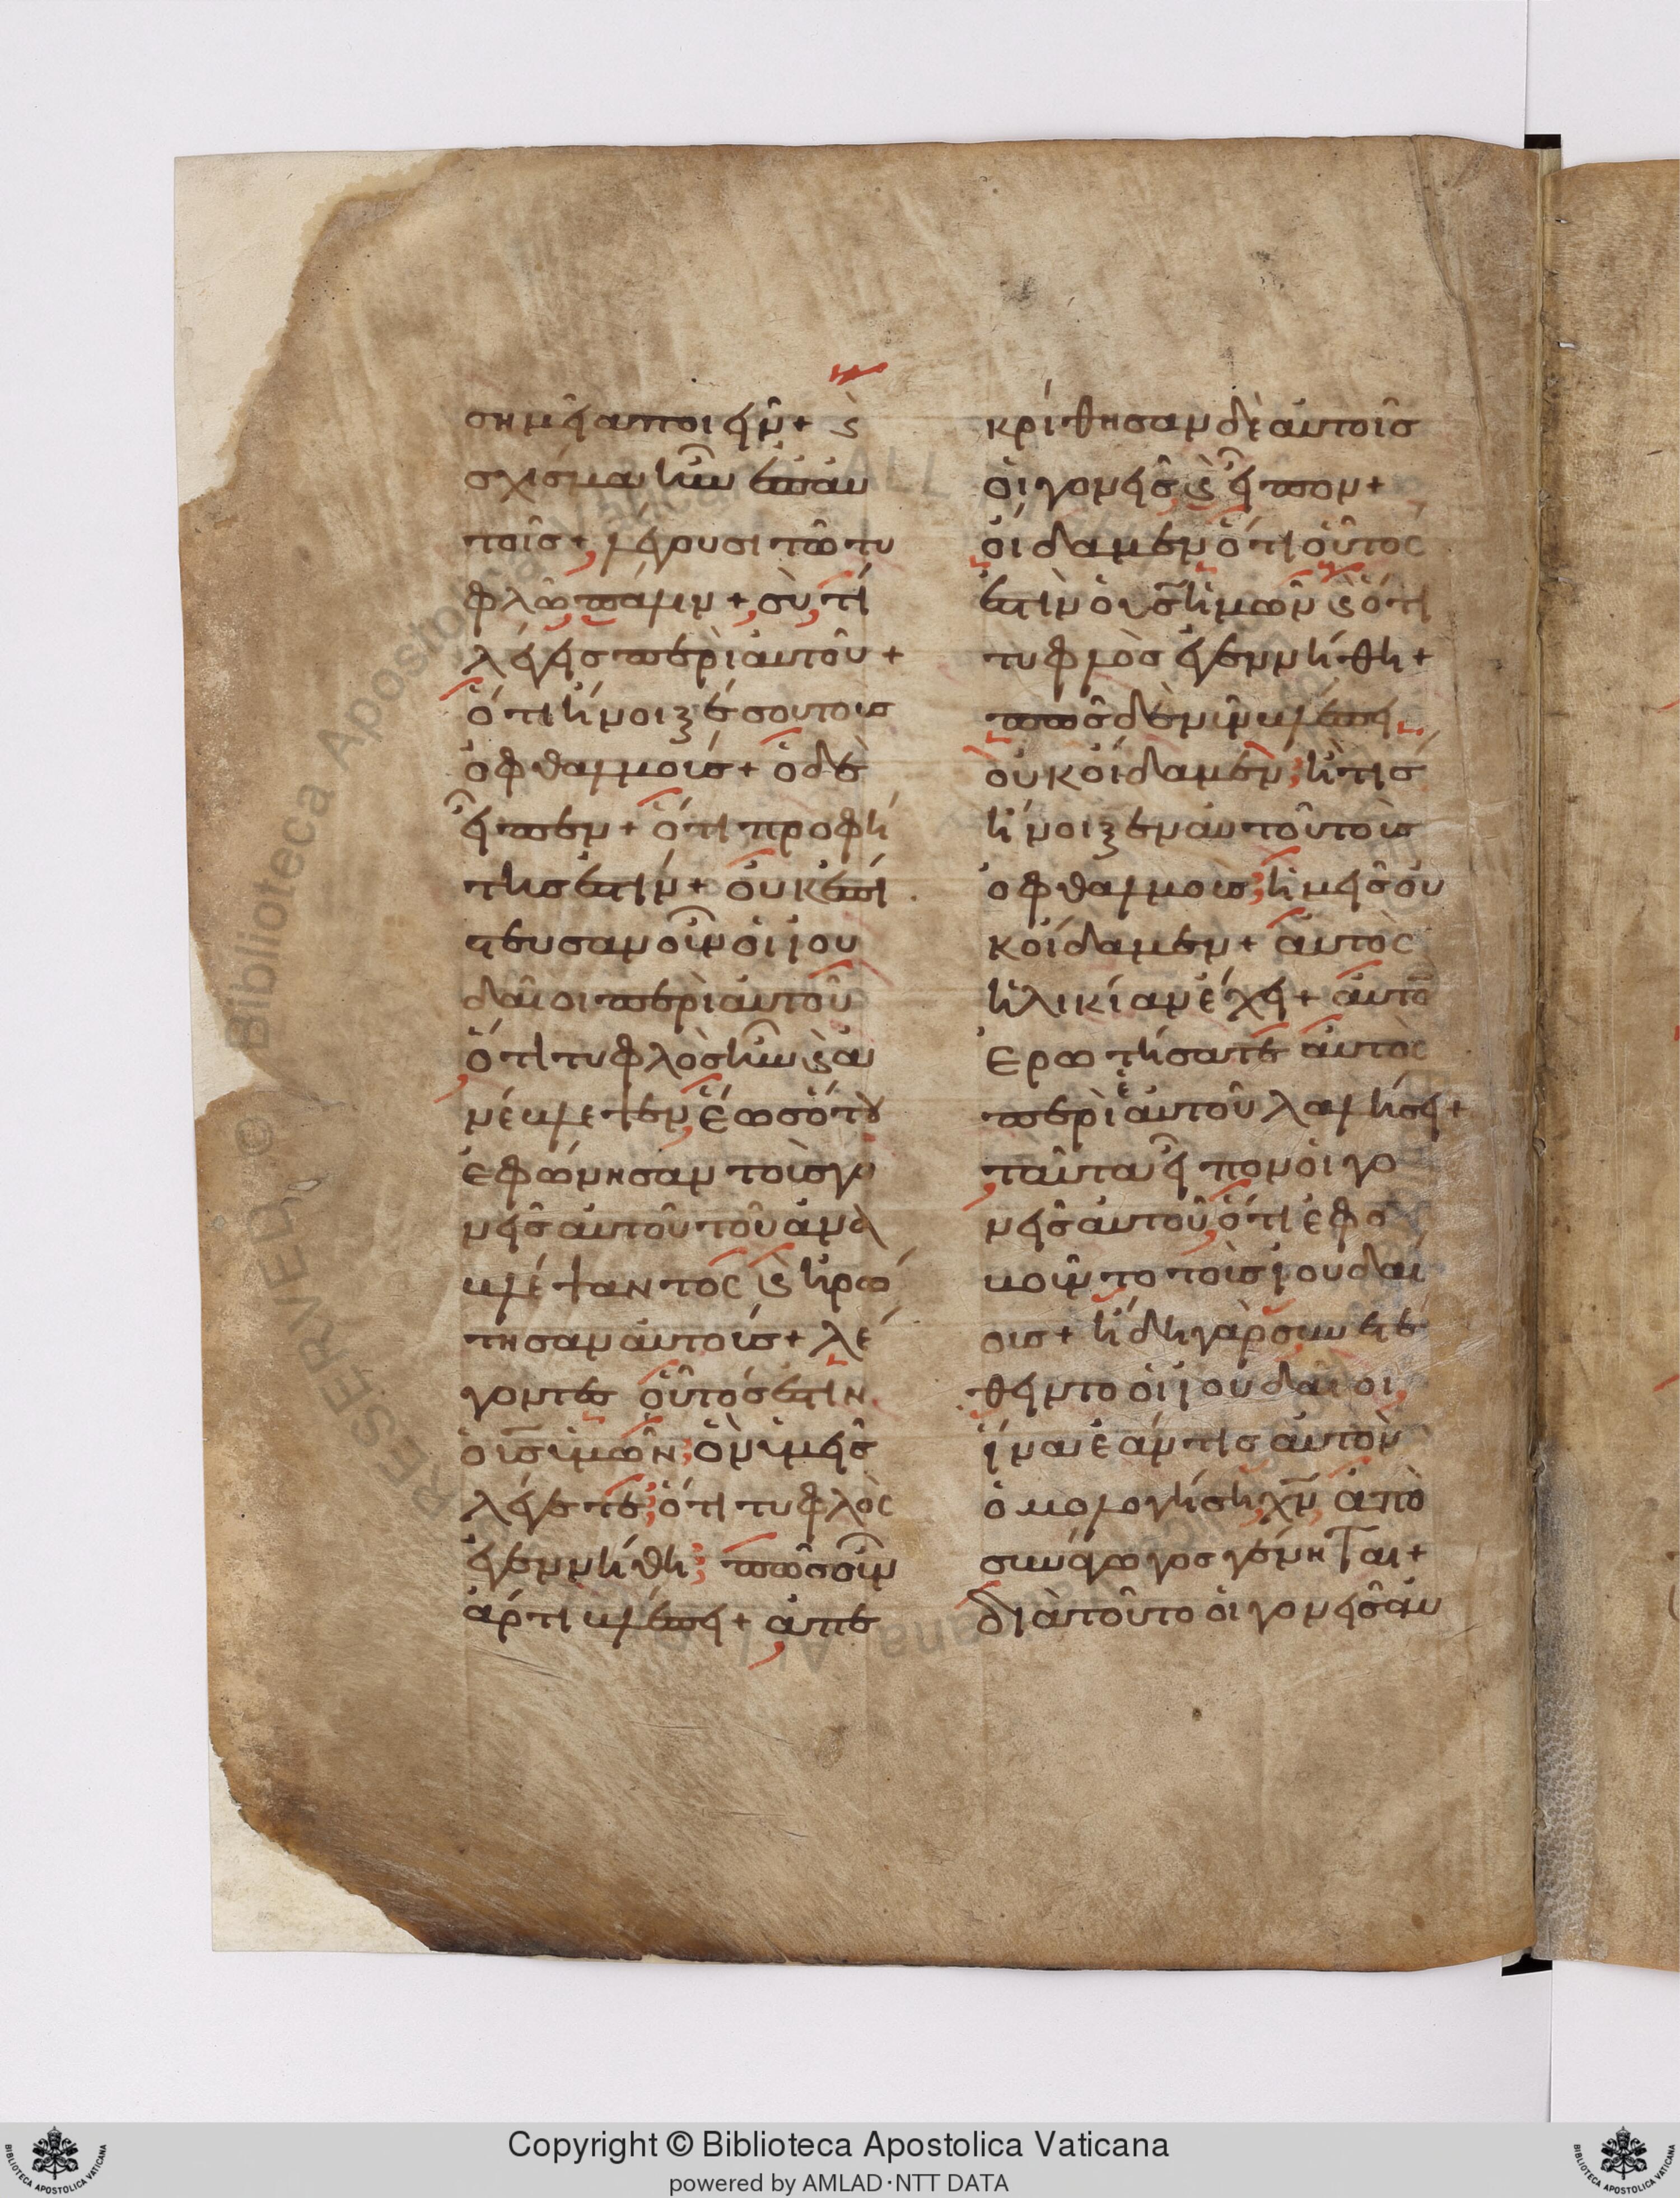 σημεῖα ποιεῖν + ϗ
σχίσμα ἦν ἐν αυ
τοῖς + λέγουσι τῶ τυ
φλῶ πάλιν + σὺ τί
λέγεις περὶ αὐτοῦ +
ὅτι ἤνοιξέ σου τοὺς
ὀφθαλμούς + ὁ δὲ
εἶπεν + ὅτι προφή
της ἐστίν + οὐκ ἐπί
στευσαν οὖν οἱ ἰου
δαῖοι περὶ αὐτοῦ
ὅτι τυφλὸς ἦν ϗ ἀ
νέβλεψεν, ἕως ὅτου
ἐφώνησαν τοὺς γο
νεῖς αὐτοῦ τοῦ ἀνα
βλέψαντος ϗ ἠρώ
τησαν αὐτούς + λέ
γοντες οὗτός ἐστιν
ὁ υς ὑμῶν, ὃν ὑμεῖς
λέγετε, ὅτι τυφλὸς
ἐγεννήθη, πῶς οὖν
ἄρτι βλέπει + ἀπε
κρίθησαν δὲ αὐτοῖς
οἱ γονεῖς ϗ εἶπον +
οἴδαμεν ὅτι οὗτος
ἐστὶν ὁ υς ἡμῶν ϗ ὅτι
τυφλὸς ἐγεννήθη +
πῶς δὲ νῦν βλέπει
οὐκ οἴδαμεν, ἢ τίς
ἤνοιξεν αὐτοῦ τοὺς
ὀφθαλμους, ἡμεῖς οὐ
κ οἴδαμεν + αὐτὸς
ἡλικίαν ἔχει + αὐτὸ
ἐρωτήσατε αὐτὸς
περὶ ἑαυτοῦ λαλήσει +
ταῦτα εἶπον οἱ γο
νεῖς αὐτοῦ, ὅτι ἐφο
βοῦντο τοὺς ἰουδαι
ους + ἤδη γὰρ συνετέ
θειντο οἱ ἰουδαῖοι,
ἵνα ἐάν τις αὐτὸν
ὁμολογήσῃ χν ἀπο
συνάγωγος γένηται +
διὰ τοῦτο οἱ γονεῖς αὐ
Copyright © Biblioteca Apostolica Vaticana
powered by AMLAD·NTT DATA